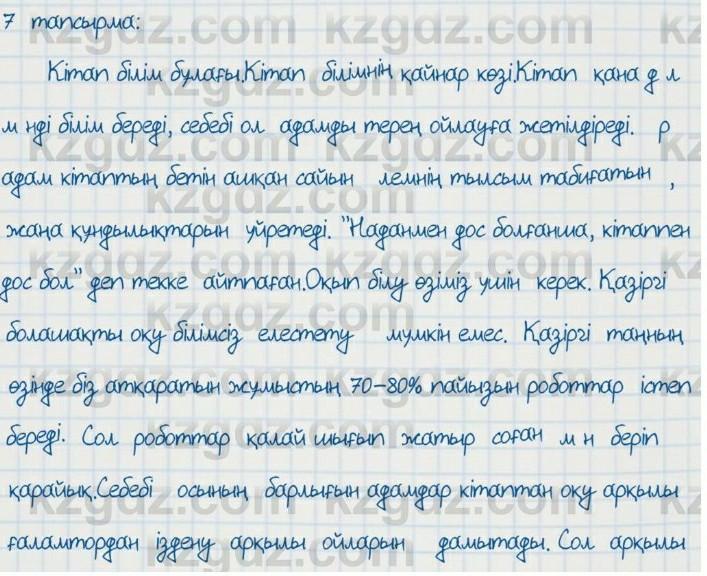 7 тапсырма:
Кітап білім бұлағы.Кітап білімнің қайнар көзі.Кітап қана д л
м нді білім береді, себебі ол адамды терең ойлауға жетілдіреді. р
адам кітаптың бетін ашқан сайын лемнің тылсым табиғатын ,
жаңа құндылықтарын үйретеді. "Наданмен дос болғанша, кітаппен
дос бол" деп текке айтпаған.Оқып білу өзіміз үшін керек. Қазіргі
болашақты оқу білімсіз елестету мүмкін емес. Қазіргі таңның
өзінде біз атқаратын жұмыстың 70-80% пайызын роботтар істеп
береді. Сол роботтар қалай шығып жатыр соған м н беріп
қарайық.Себебі осының барлығын адамдар кітаптан оқу арқылы
ғаламтордан іздену арқылы ойларын дамытады. Сол арқылы